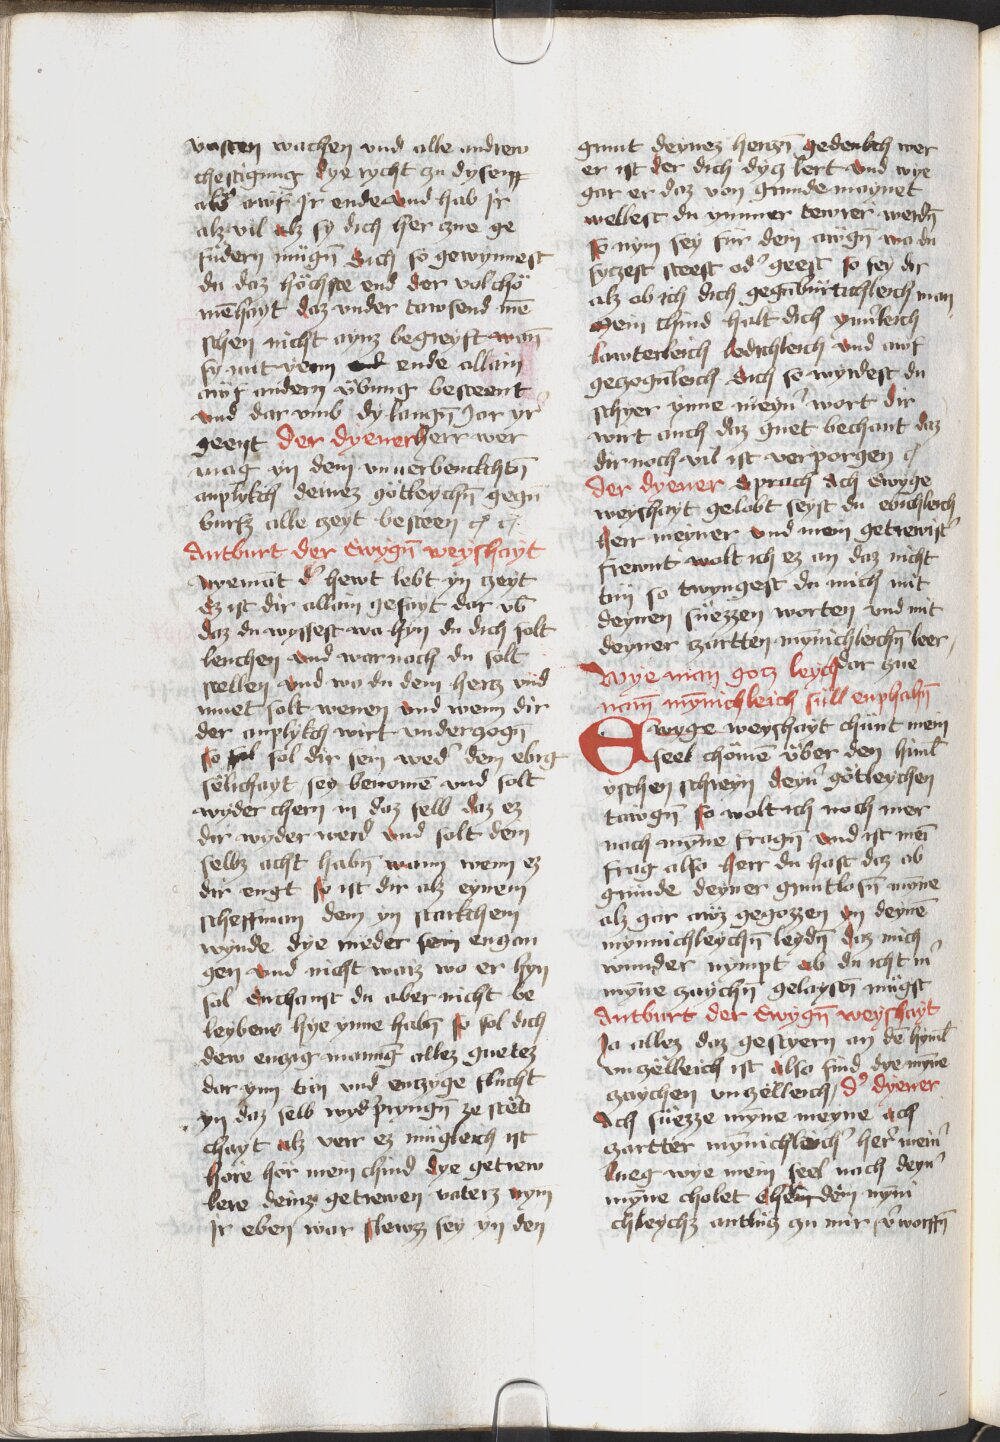 vasten wachen vnd alle andrew
chestigung dye rycht zu dysem
alz auf ir ende vnd hab ir
alz vil alz sy dich her czue ge
füdern mügn̄ dich so gewynnest
du daz höchste end der volchō
mēhayt daz vnder tawsend mē
schen nicht aynz begreyft wan̄
sy mit yenn ende allain
auf andern übung besteent
vnd dar vmb dy langn̄ Jar yr
geent Der dyener herr wer
mag yn dem vnuerdenckchtn̄
anplykch deinez götleychn̄ gegn̄
burtz alle czeyt besteen
Antburt der Ewygn̄ weyshayt
Nyemāt d' hewt lebt yn czeyt
Ez ist dir allain gesayt dar vb̄
daz du wyssest wa hyn du dich solt
lenchen vnd war nach du solt
stellen vnd wo du dem hertz vnd
muet solt wenen vnd wenn dir
der anplykch wirt vnderzogn̄
so sol dir sein wed' dem ebig
sëlichayt sey benomē vnd solt
wyder chern in daz selb daz ez
dir wyder werd vnd solt dein
selbz acht habn̄ wann wenn ez
dir engt so ist dir alz eynem
scheffman dem yn starkchem
wynde dye rueder sein engan
gen vnd nicht waiz wo er hyn
sol Enchanst du aber nicht be
leybens hye ynne habn̄ so sol dich
dew enczig manūg allez guetez
dar ynn tün vnd enczyge flucht
yn daz selb wyd'pryngn̄ ze stëti
chayt alz verr ez mügleich ist
höre hör mein chind dye getrew
lere deinz getrewen vaterz nym
Ir eben war slewz sey yn den
grunt deynez herczn̄ gedenkch wer
er ist der dich dycz lert vnd wye
gar er daz von grunde maynet
wellest du ymmer tewrer werdn̄
so nym sey für dein augn̄ wa du
syczest steest od' geest so sey dir
alz ob ich dich gegnbürtichleich man
Mein chind halt dich ynn'leich
lawterleich ledichleich vnd auf
geczogn̄leich Dich so wyrdest du
schyer ynne meyn' wort dir
wirt auch daz guet bechant daz
dir noch vil ist verporgen
Der dyener sprach Ach Ewyge
weyshayt gelobt seyst du ewichleich
Herr meyner vnd mein getrewist'
frewnt wolt ich ez an daz nicht
tün so twyngest du mich mit
deynen süezzen worten vnd mit
deyner zartten mynnichleichn̄ leer
Wye man gotz leych dar zue
nam mynnichleich süll enphahn̄
Ewyge weyshayt chünt mein
seel chömē über den himl
yschen schreyn deyn' götleychen
tawgn̄ so wolt ich noch mer
nach mynne fragn̄ vnd ist mei
frag also Herr du hast daz ab
gründe deyner gruntlosn̄ mynne
alz gar auz gegozzen yn deynē
mynnichleychn̄ leydn̄ daz mich
wunder nympt ob du icht m'
mynne czaychn̄ gelaystn̄ mügst
Antburt der Ewygn̄ weyshayt
Ja allez daz gestyern an dē hyml
vnczelleich ist also sind dye mynne
czaychen vnczelleich / D' dyener
Ach süezze mynne meyne ach
zartter mynnichleich' her' mein'
lueg wye mein seel nach deyn'
mynne cholet Cher dein mynni
chleychz antlütz zu mir v'worffn̄